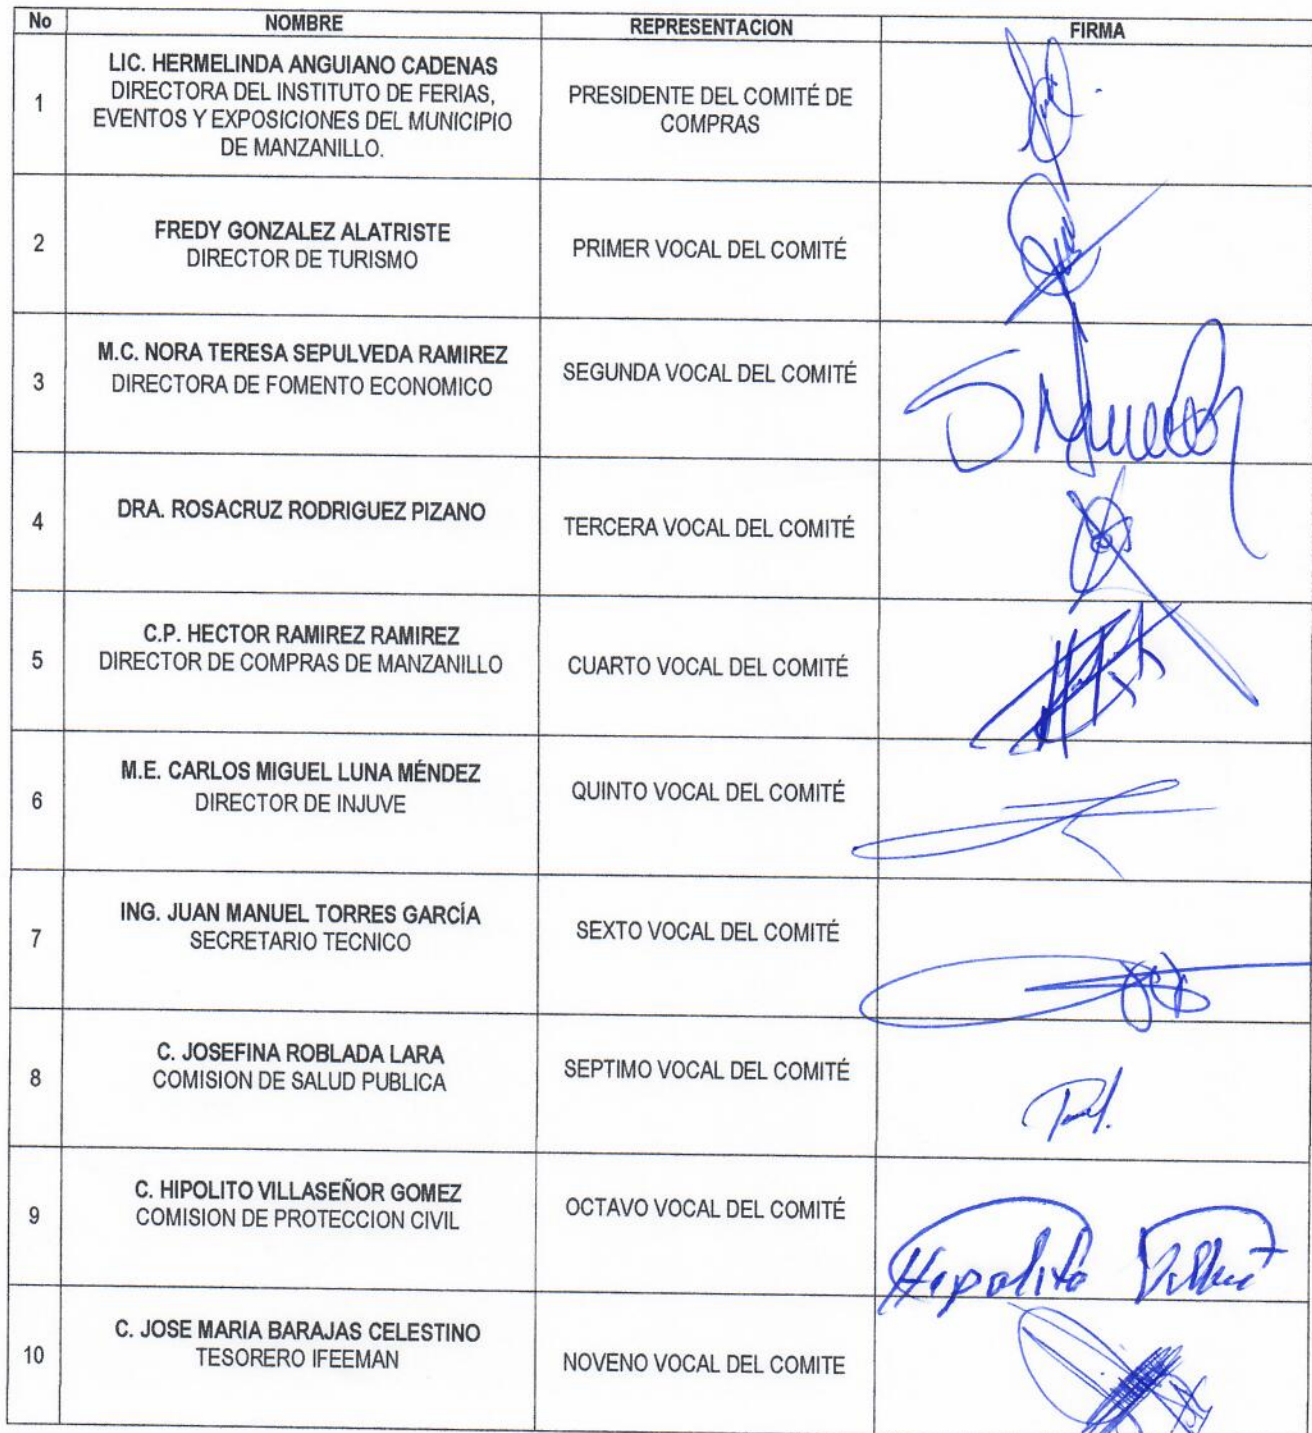 No NOMBRE REPRESENTACION FIRMA
1
LIC. HERMELINDA ANGUIANO CADENAS
DIRECTORA DEL INSTITUTO DE FERIAS,
EVENTOS Y EXPOSICIONES DEL MUNICIPIO
DE MANZANILLO.
PRESIDENTE DEL COMITÉ DE
COMPRAS
2
FREDY GONZALEZ ALATRISTE
DIRECTOR DE TURISMO
PRIMER VOCAL DEL COMITÉ
3
M.C. NORA TERESA SEPULVEDA RAMIREZ
DIRECTORA DE FOMENTO ECONOMICO
SEGUNDA VOCAL DEL COMITÉ
4
DRA. ROSACRUZ RODRIGUEZ PIZANO
TERCERA VOCAL DEL COMITÉ
5
C.P. HECTOR RAMIREZ RAMIREZ
DIRECTOR DE COMPRAS DE MANZANILLO
CUARTO VOCAL DEL COMITÉ
6
M.E. CARLOS MIGUEL LUNA MÉNDEZ
DIRECTOR DE INJUVE
QUINTO VOCAL DEL COMITÉ
7
ING. JUAN MANUEL TORRES GARCÍA
SECRETARIO TECNICO
SEXTO VOCAL DEL COMITÉ
8
C. JOSEFINA ROBLADA LARA
COMISION DE SALUD PUBLICA
SEPTIMO VOCAL DEL COMITÉ
9
C. HIPOLITO VILLASEÑOR GOMEZ
COMISION DE PROTECCION CIVIL
OCTAVO VOCAL DEL COMITÉ
Hipolito
10
C. JOSE MARIA BARAJAS CELESTINO
TESORERO IFEEMAN
NOVENO VOCAL DEL COMITE